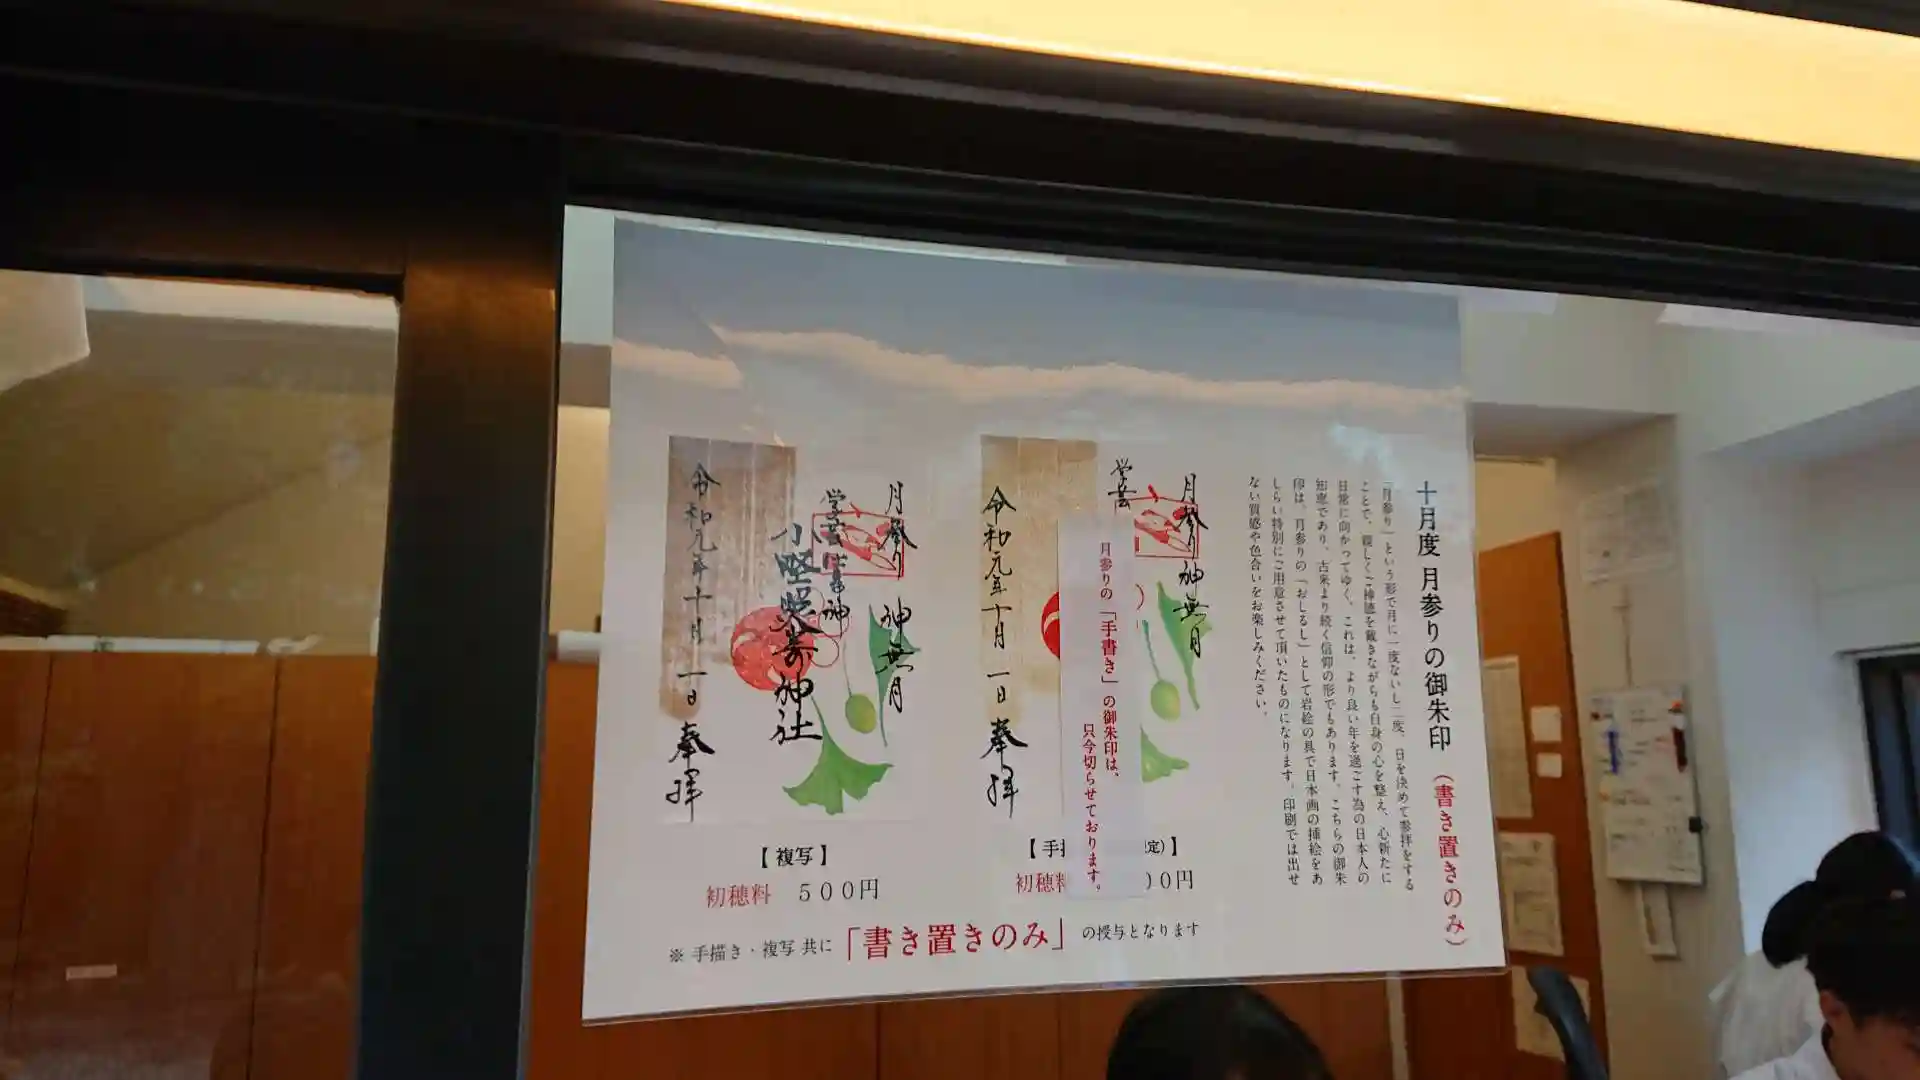 十月度 月参りの御朱印 (書き置きのみ)
「月参り」という形で月に一度ないし二度、日を決めて参拝をする
ことで、親しくご神徳を戴きながらも自身の心を整え、心新たに
日常に向かってゆく、これは、より良い年を過ごす為の日本人の
知恵であり、古来より続く信仰の形でもあります。こちらの御朱
印は、月参りの「おしるし」として岩絵の具で日本画の挿絵をあ
しらい特別にご用意させて頂いたものになります。印刷では出せ
ない質感や色合いをお楽しみください。
月参り 神無月
学芸
月参りの「手書き」の御朱印は、
只今切らせております。
令和元年十月一日 奉拝
【手
定)】
初穂料
00円
月参り 神無月
学芸
神
小野照崎神社
令和元年十月一日 奉拝
【複写】
初穂料 500円
※ 手描き・複写 共に「書き置きのみ」の授与となります